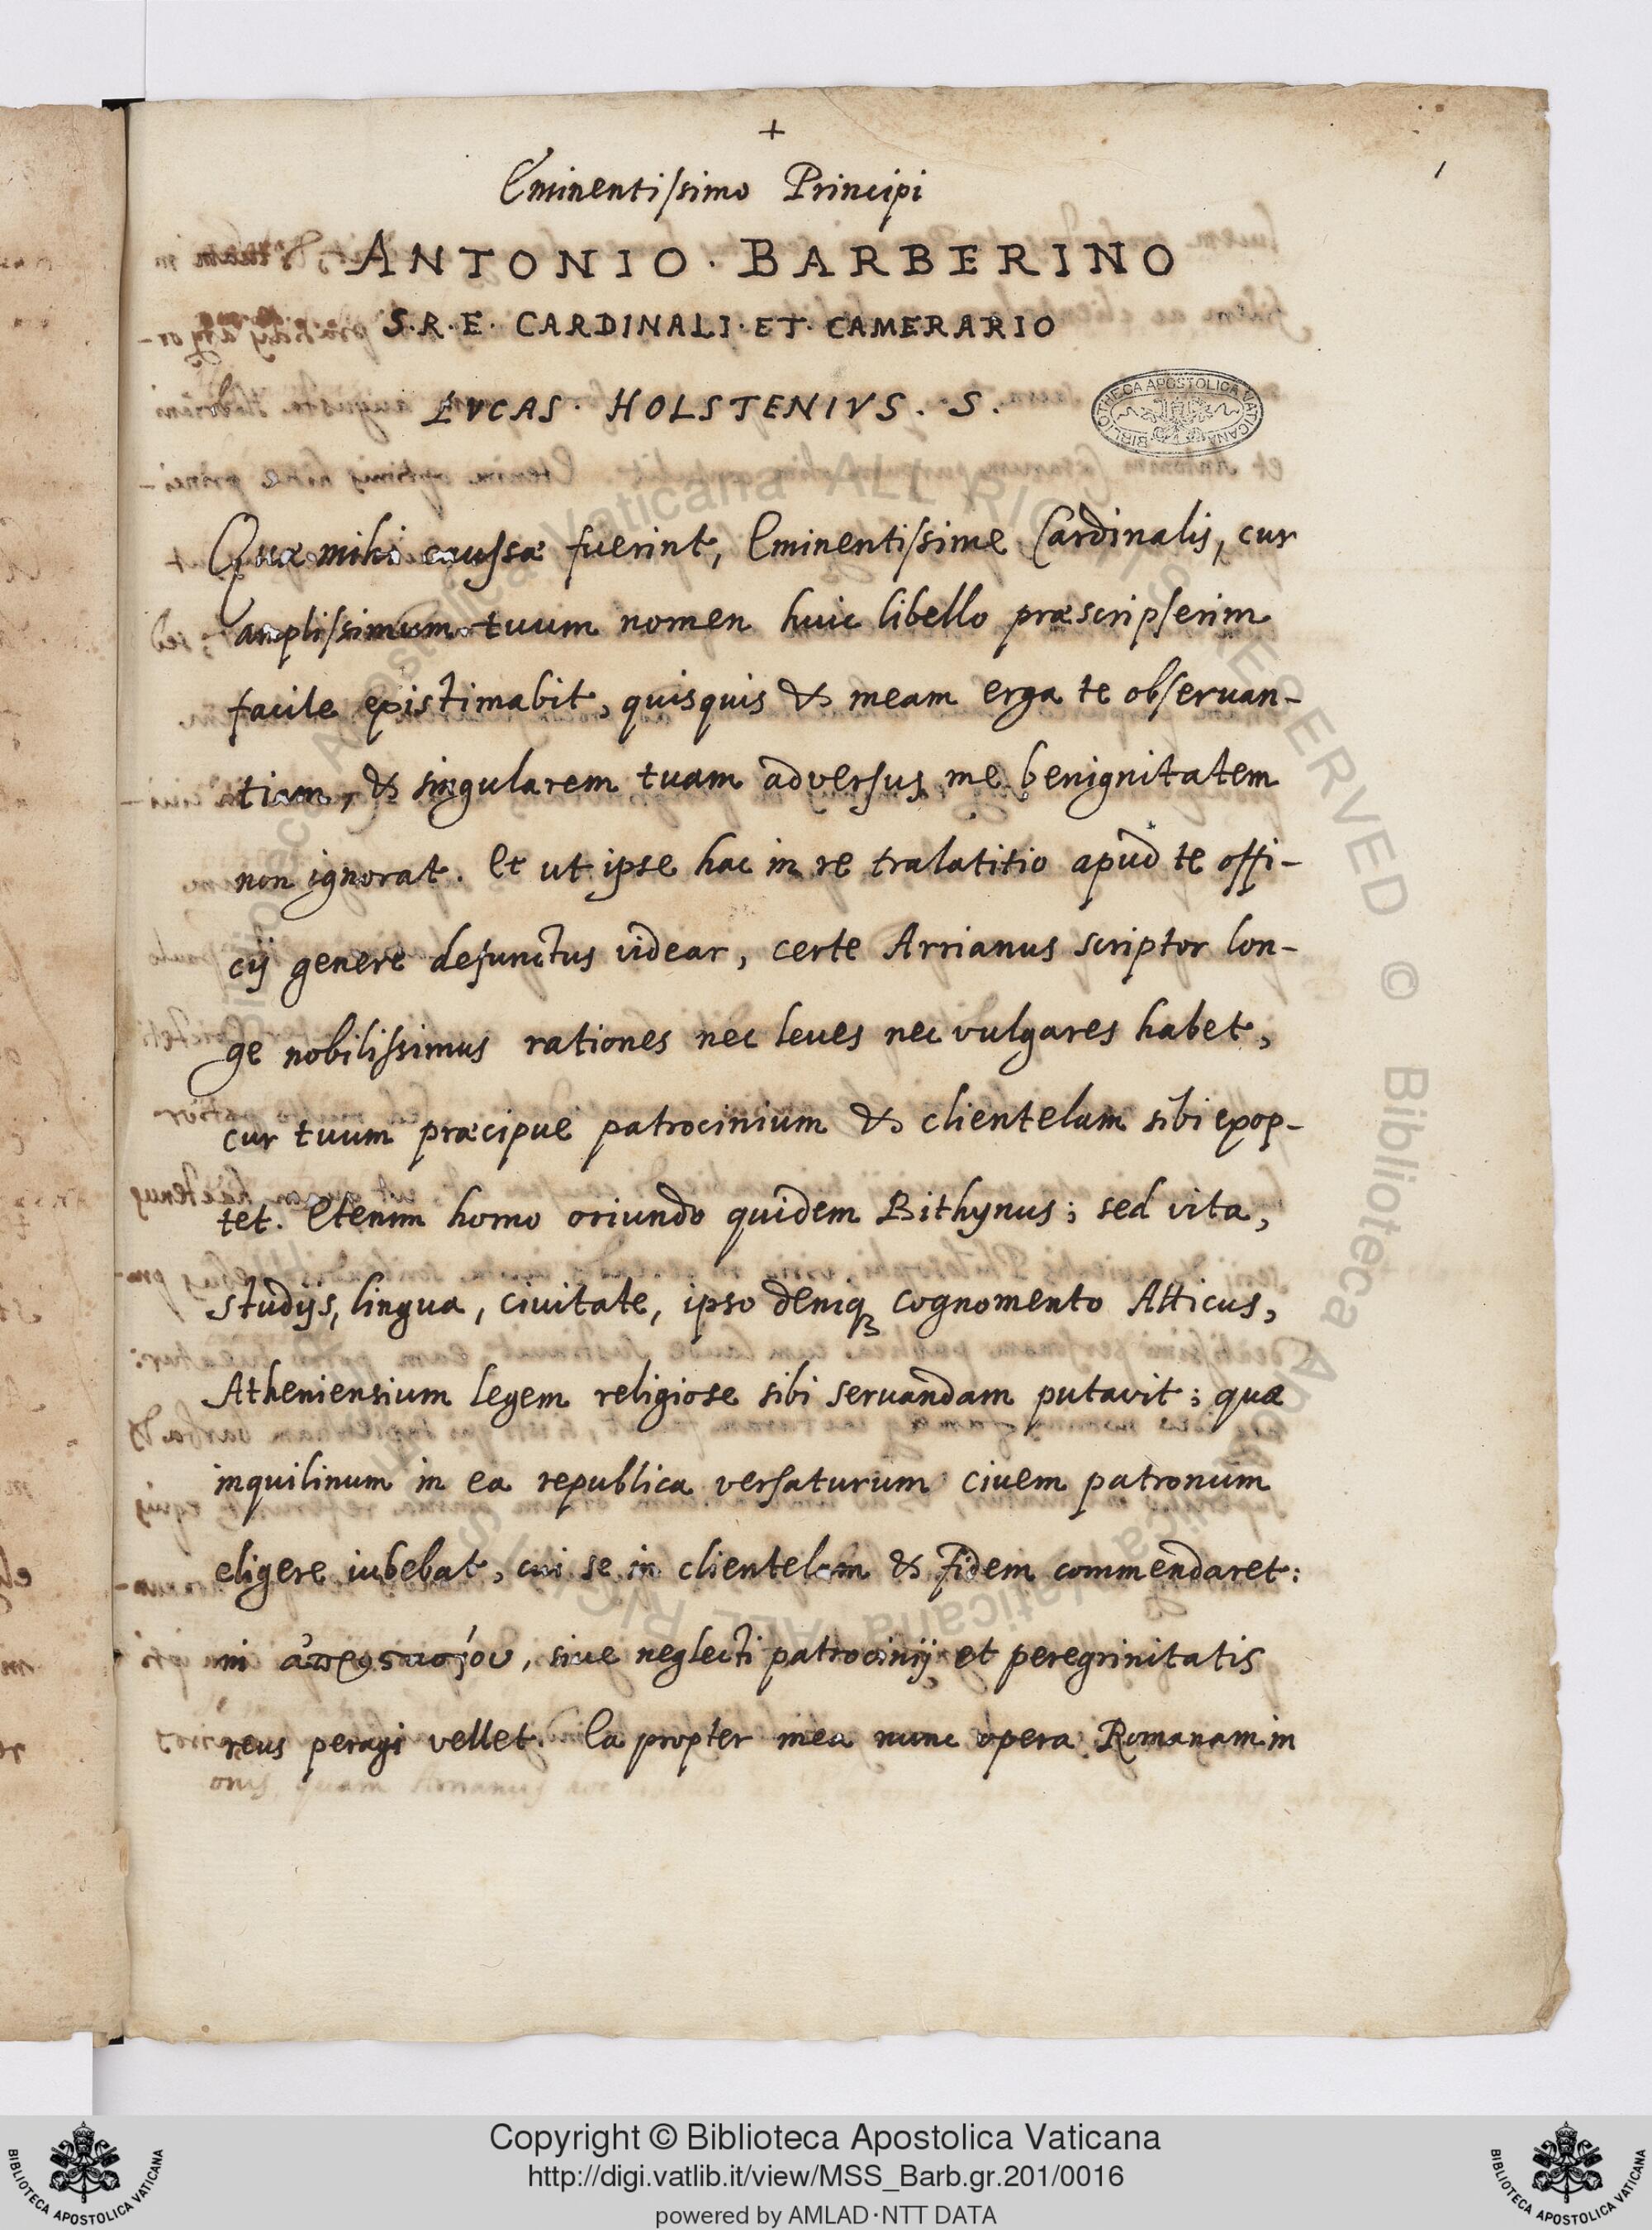 +
1
Eminentissimo Principi
ANTONIO · BARBERINO
S·R·E· CARDINALI·ET·CAMERARIO
LVCAS· HOLSTENIVS. S.
BIBLIOTHECA APOSTOLICA VATICANA
Quæ mihi caussæ fuerint, Eminentissime Cardinalis, cur
amplissimum tuum nomen huic libello præscripserim
facile existimabit, quisquis & meam erga te obseruan-
tiam, & singularem tuam adversus me benignitatem
non ignorat. Et ut ipse hac in re tralatitio apud te offi-
cij genere defunctus videar, certe Arrianus scriptor lon-
ge nobilissimus rationes nec leues nec vulgares habet,
cur tuum præcipue patrocinium & clientelam sibi exop-
tet. Etenim homo oriundo quidem Bithynus; sed vita,
studijs, lingua, civitate, ipso deniq3 cognomento Atticus,
Atheniensium legem religiose sibi servandam putavit; quæ
inquilinum in ea republica versaturum civem patronum
eligere iubebat, cui se in clientelam & fidem commendaret:
ni ἀπροστασίου, siue neglecti patrocinij et peregrinitatis
reus peragi vellet. Ea propter mea nunc opera Romanam in
Biblioteca Apostolica Vaticana ALL RIGHTS RESERVED © Biblioteca Apostolica Vaticana ALL RIGHTS RESERVED ©
Copyright © Biblioteca Apostolica Vaticana
http://digi.vatlib.it/view/MSS_Barb.gr.201/0016
powered by AMLAD·NTT DATA
BIBLIOTECA APOSTOLICA VATICANA
BIBLIOTECA APOSTOLICA VATICANA